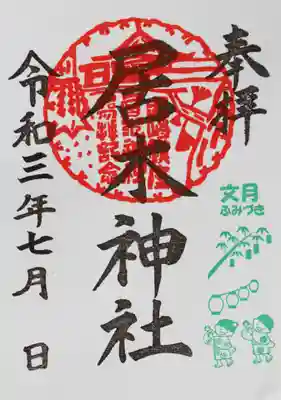 奉拝
文月
ふみづき
居木神社
令和三年七月 日